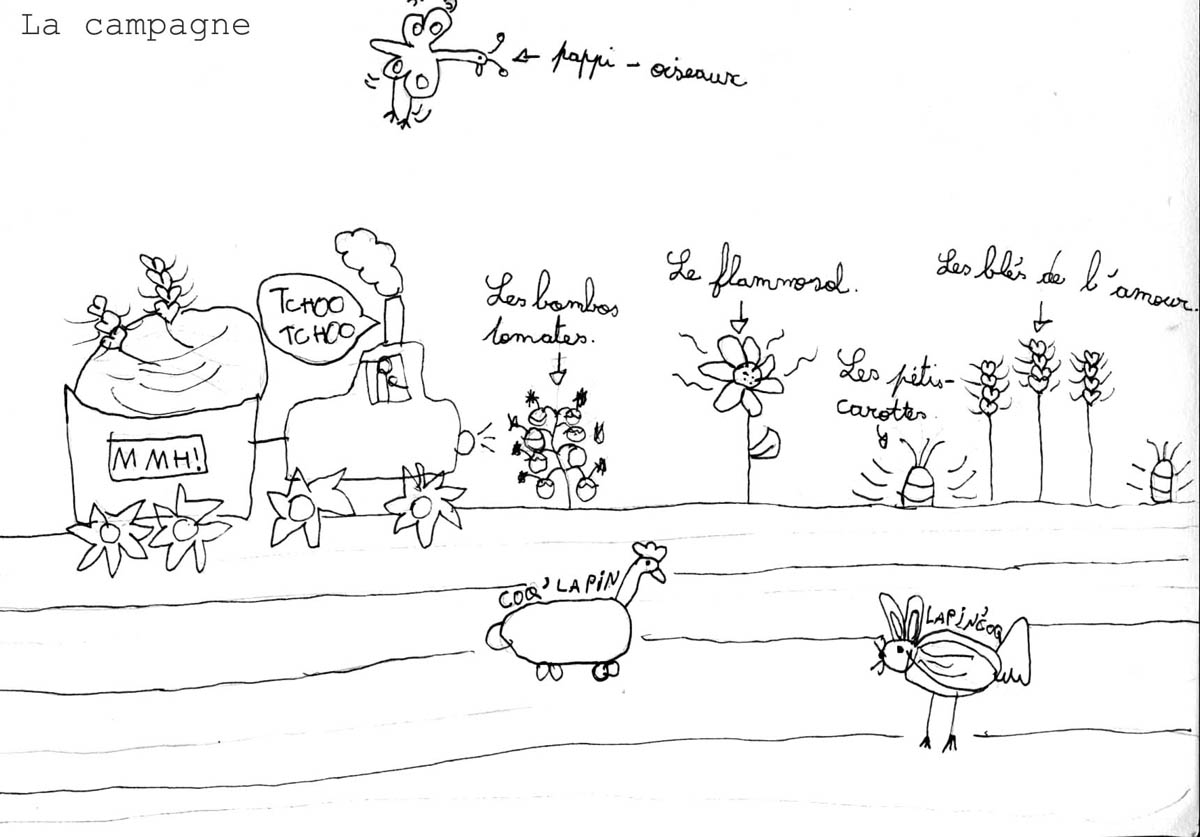 La campagne
pappi - oiseaux
TCHOO
TCHOO
Les bombos
tomates.
Le flammosol.
Les blés de l'amour.
Les pétis-
carottes.
MMH!
COQ'LAPIN
LAPIN'COQ